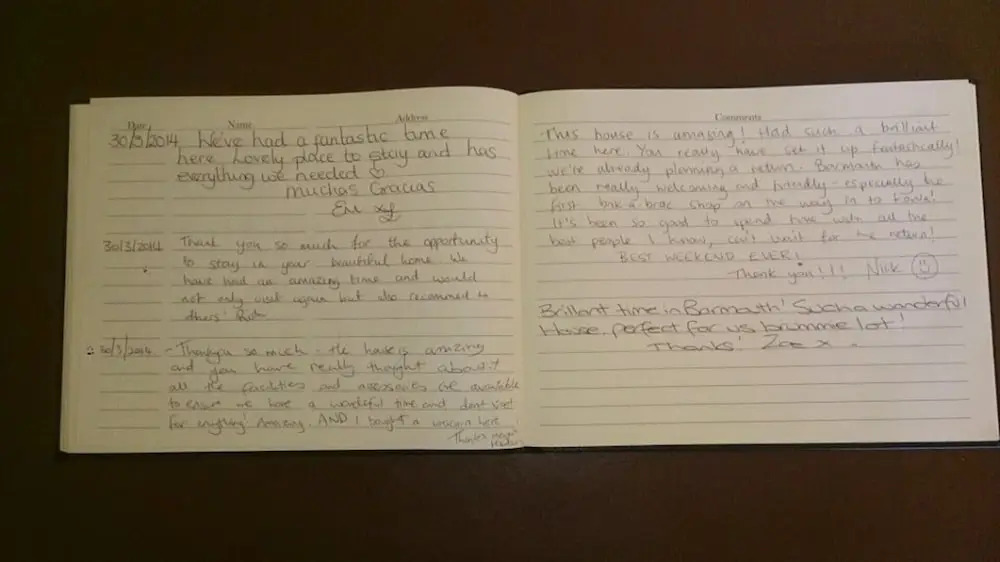 Date Name Address
30/3/2014 We've had a fantastic time
here. Lovely place to stay and has
everything we needed
Muchas Gracias
Em
30/3/2014 Thank you so much for the opportunity
to stay in your beautiful home. We
have had an amazing time and would
not only visit again but also recommend to
others! Rich
30/3/2014 - Thankyou so much - the house is amazing
and you have really thought about it
all the facilities and accessories are available
to ensure we have a wonderful time and dont want
for anything! Amazing. AND I bought a here
Thanks
Comments
This house is amazing! Had such a brilliant
time here. You really have set it up fantastically!
we're already planning a return. Barmouth has
been really welcoming and friendly - especially the
first bric-a-brac shop on the way in to town!
It's been so good to spend time with all the
best people I know, can't wait for the return!
BEST WEEKEND EVER!
Thank you!!! Nick
Brilliant time in Barmouth! Such a wonderful
House, perfect for us brummie lot!
Thanks! Zoe x